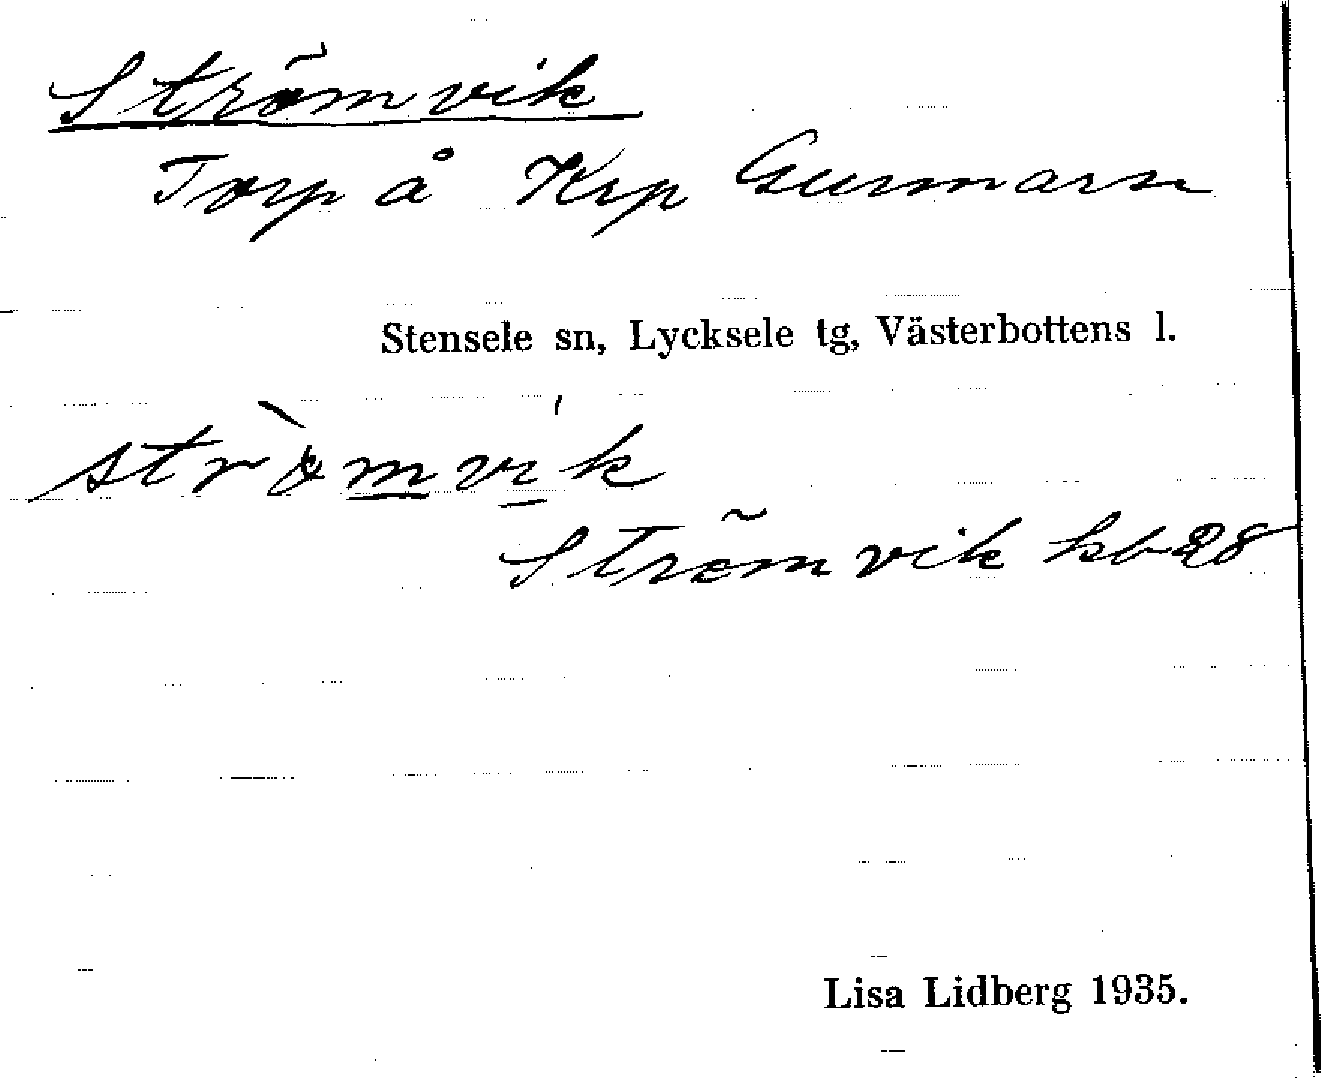 Strömvik
Torp å Krp Gunnarn
Stensele sn, Lycksele tg, Västerbottens l.
strömvik
Strömvik kb 28
Lisa Lidberg 1935.